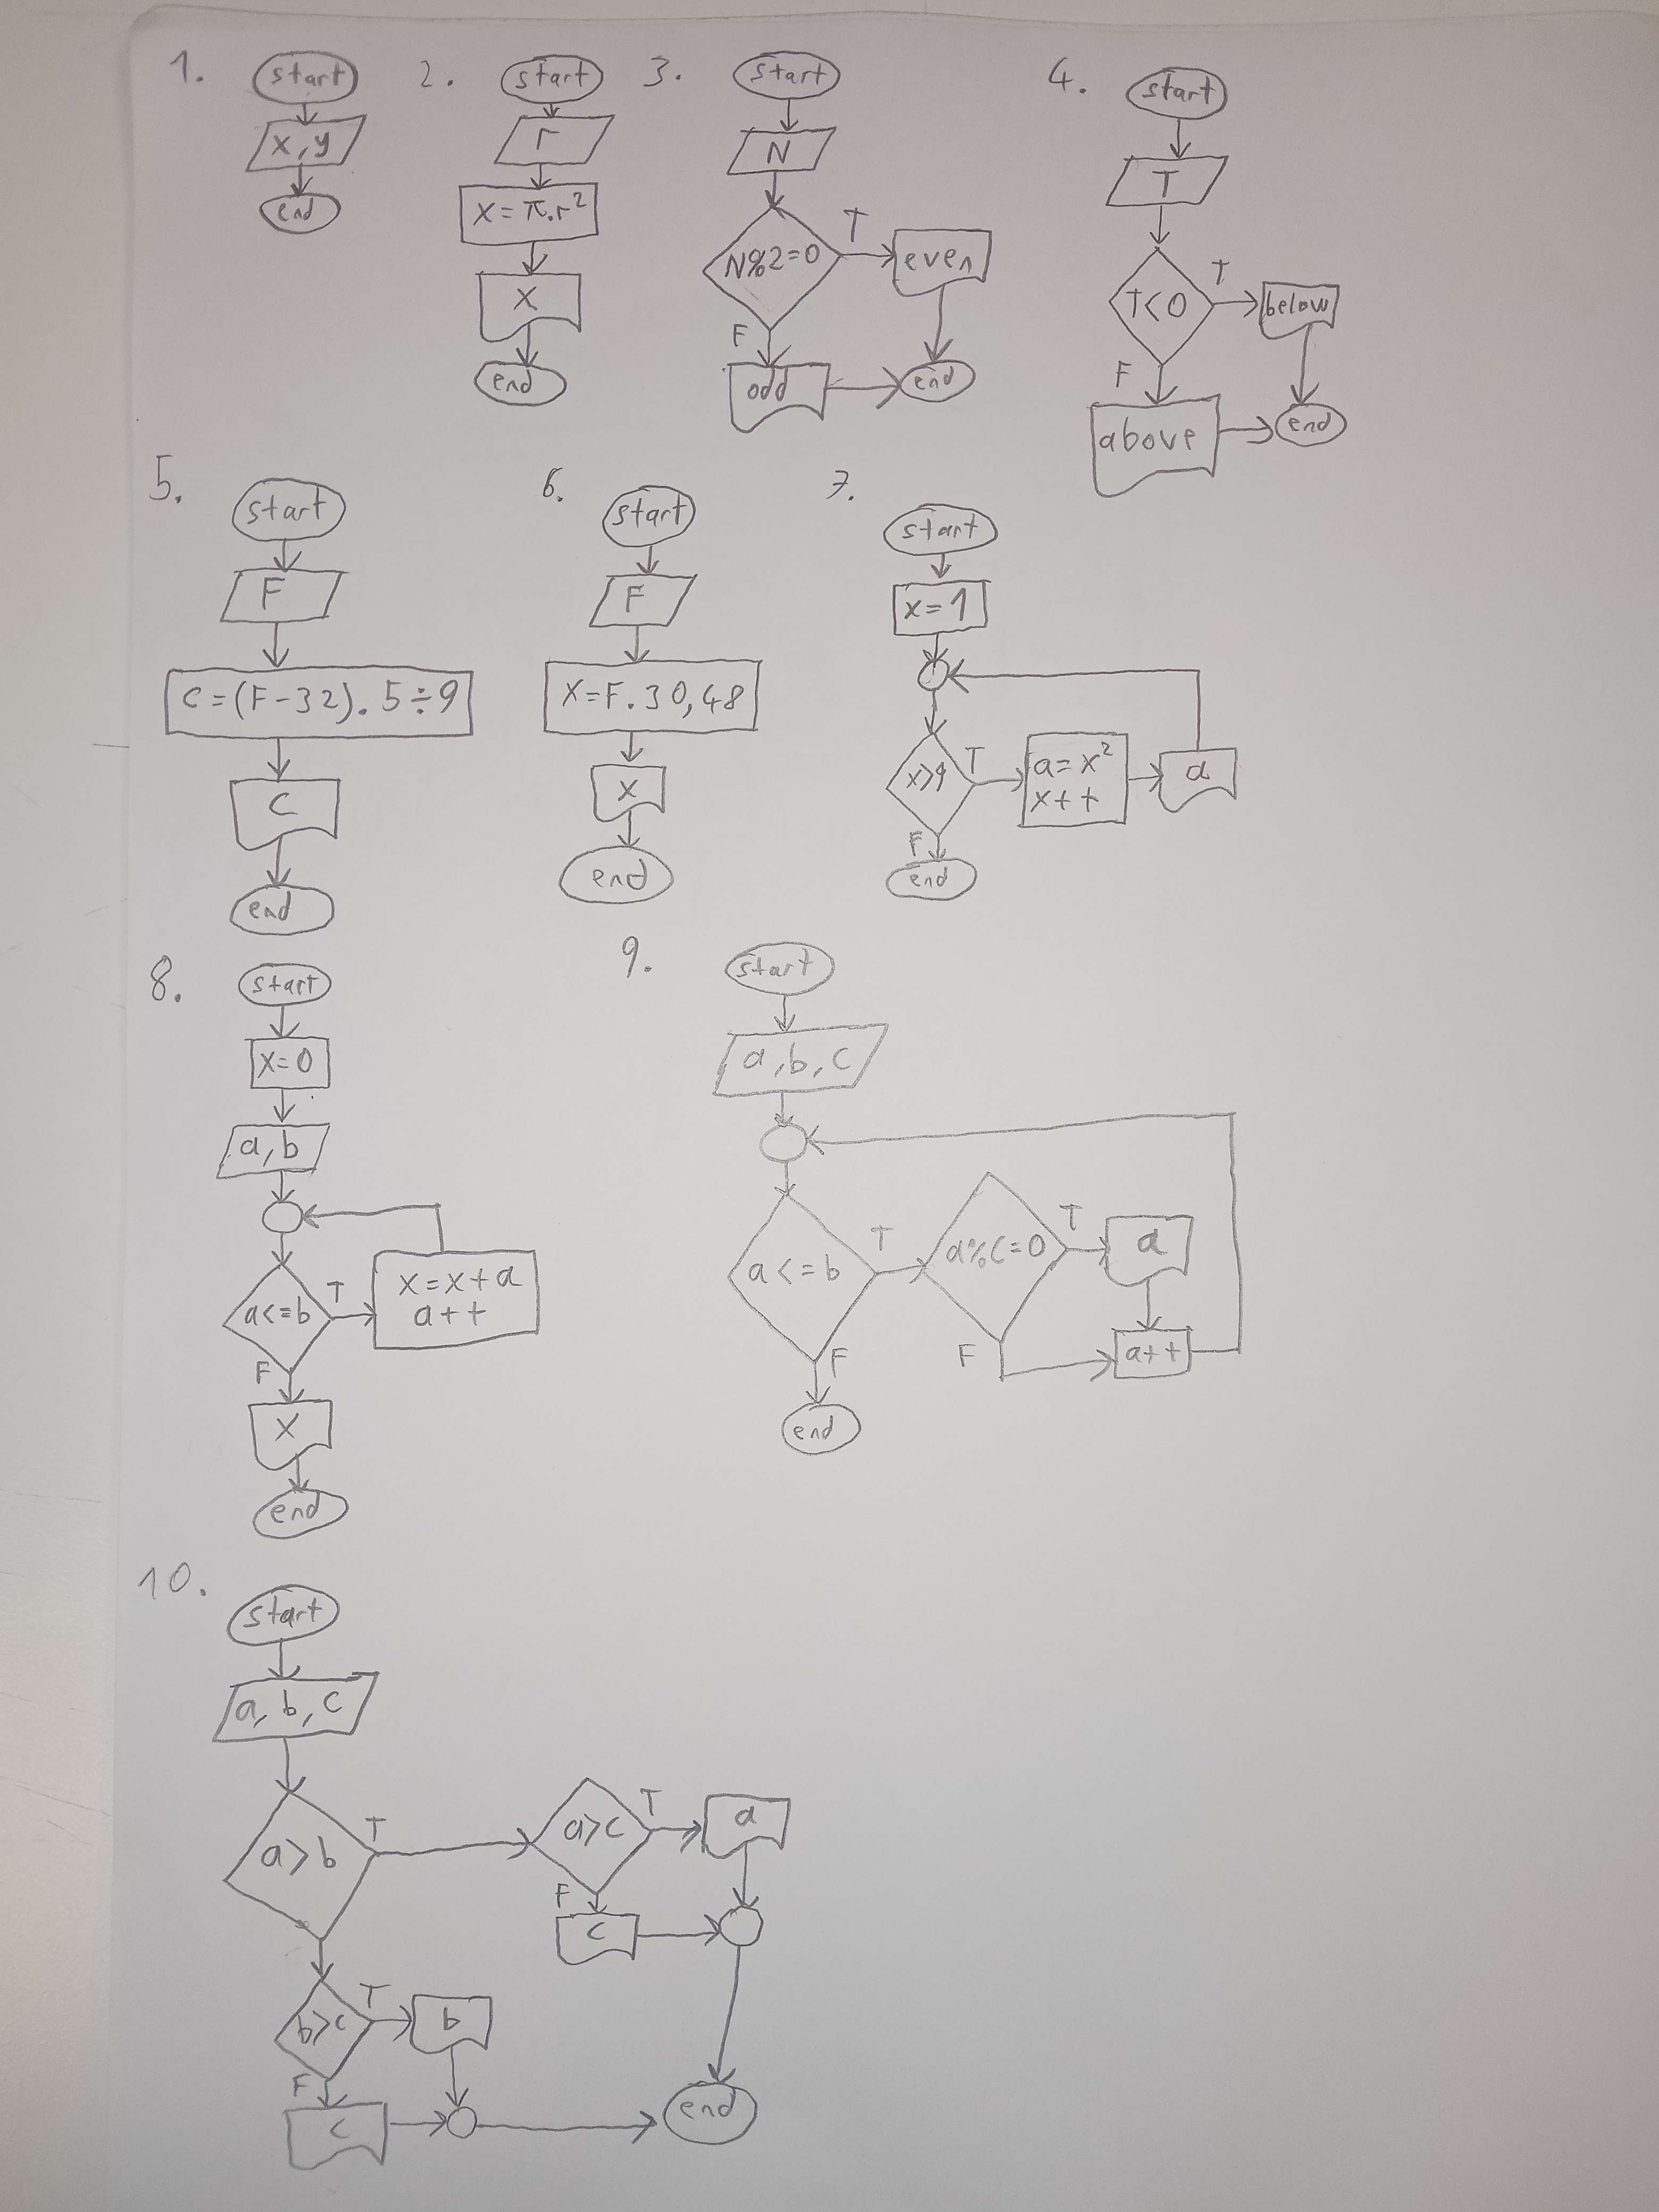 1.
start
x, y
end
2.
start
r
x = π.r²
x
end
3.
start
N
N%2=0
T
even
F
odd
end
4.
start
T
T<0
T
below
F
above
end
5.
start
F
C = (F-32). 5÷9
C
end
6.
start
F
X=F.30,48
X
end
7.
start
x=1
x>9
T
a = x²
x++
a
F
end
8.
start
X=0
a, b
a<=b
T
x = x+a
a++
F
X
end
9.
start
a, b, c
a<=b
T
a%c=0
T
a
F
a++
F
end
10.
start
a, b, c
a>b
T
a>c
T
a
F
c
b>c
T
b
F
c
end